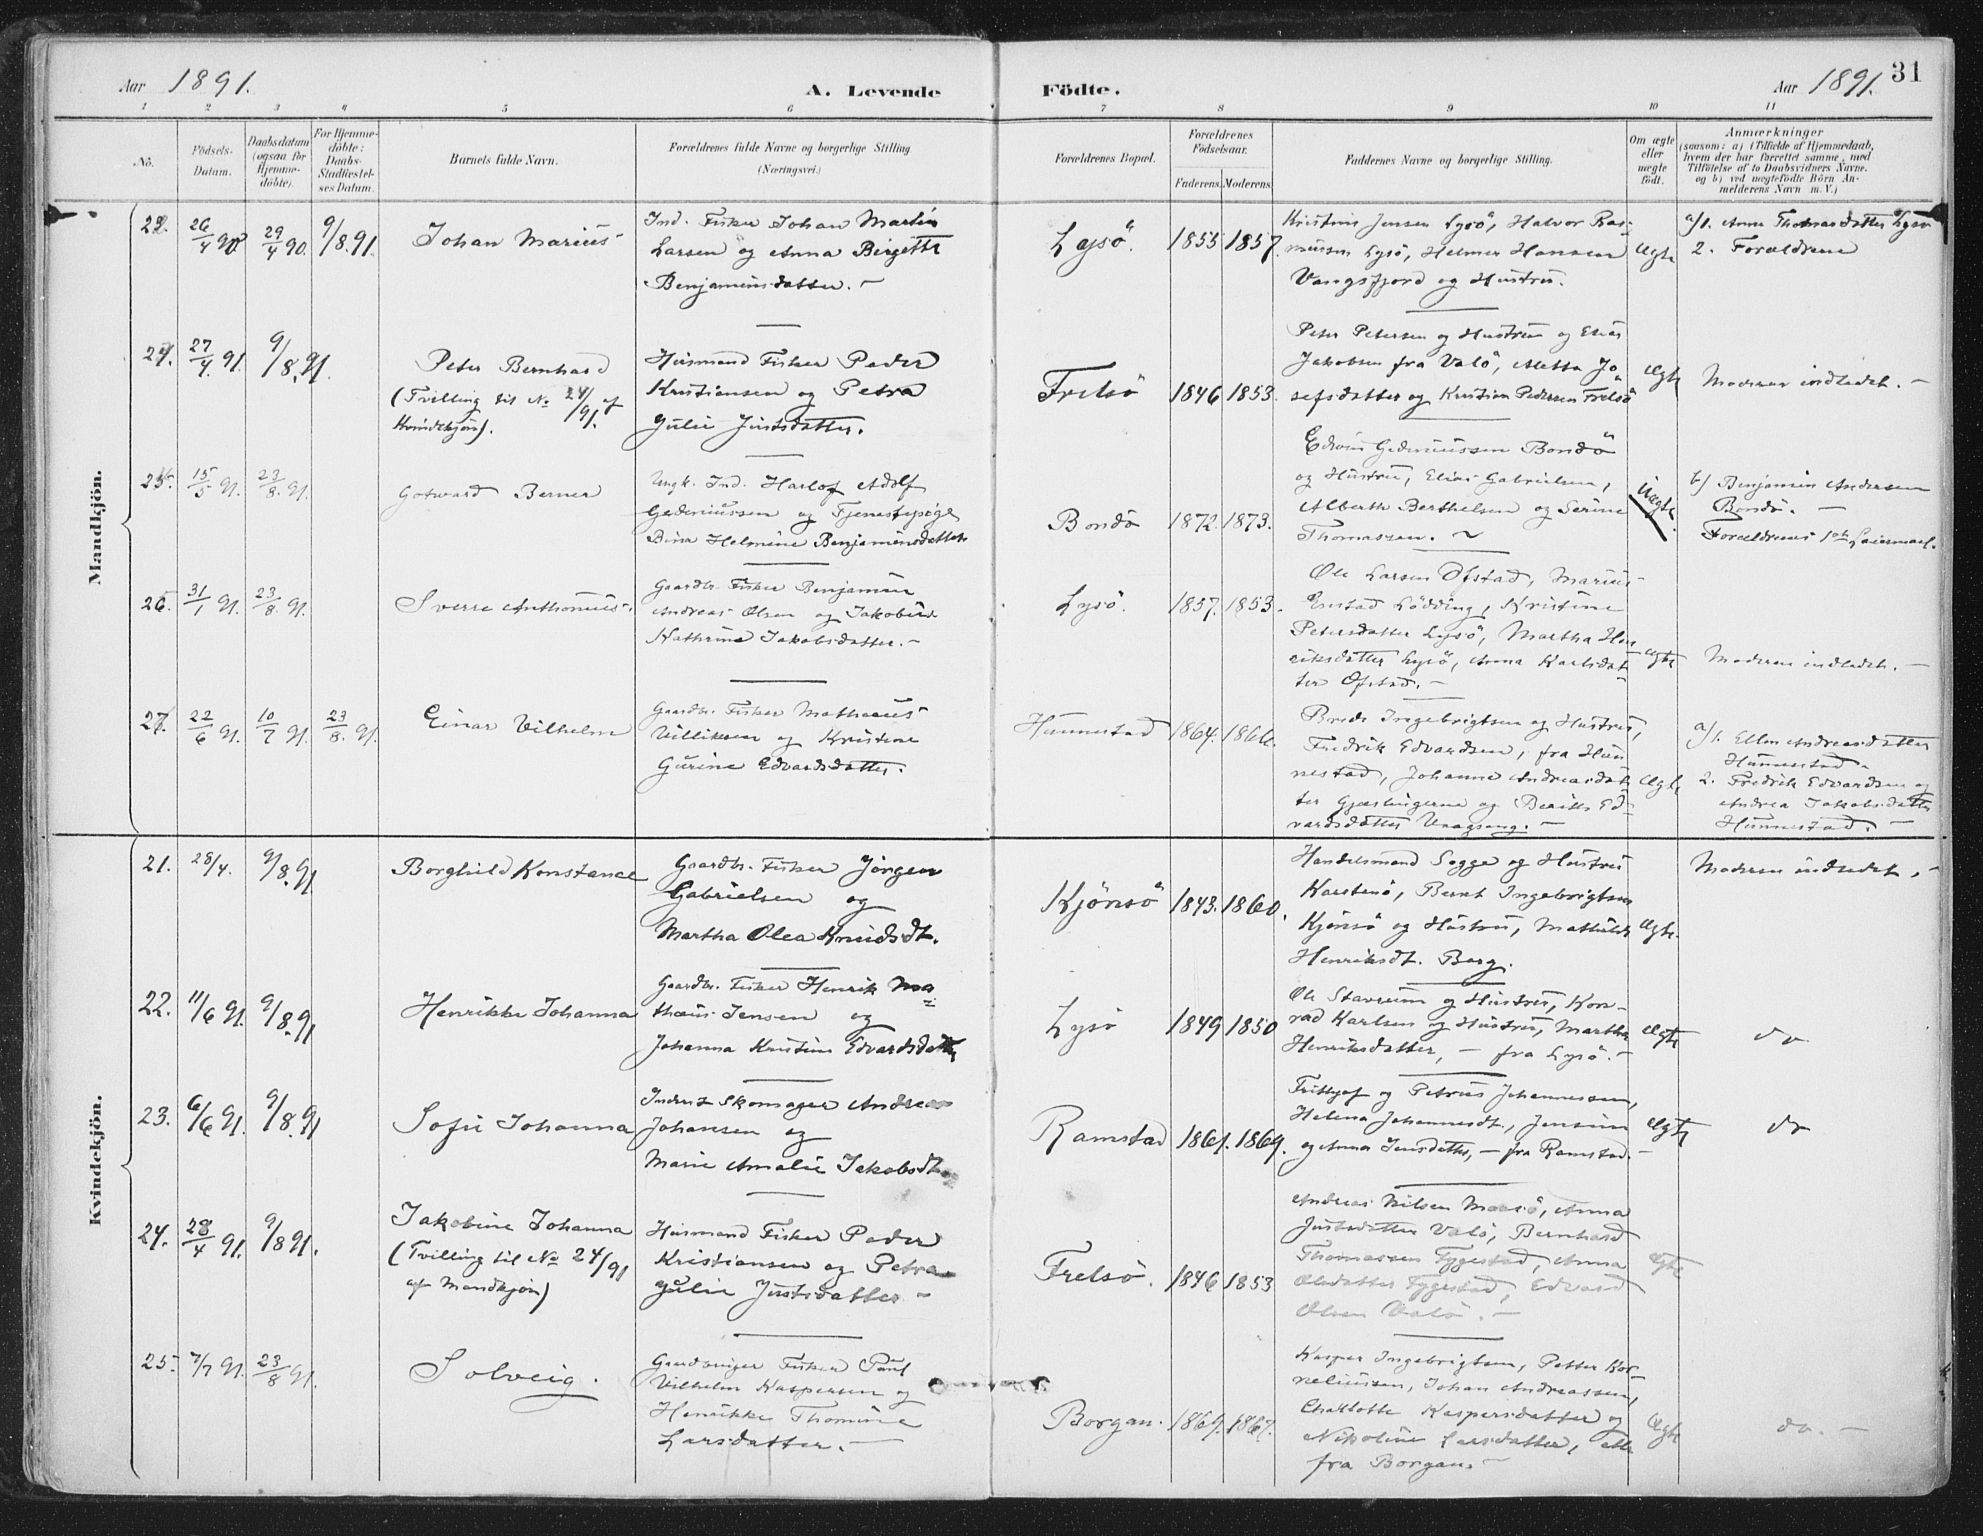 Aar 1891.
A. Levende
Födte.
Aar 1891.
31
1 2 3 4 5 6 7 8 9 10 11
No.
Födsels-
Datum.
Daabsdatum
(ogsaa for
Hjemme-
döbte).
For Hjemme-
döbte:
Daabs-
Stadfæstel-
ses Datum.
Barnets fulde Navn.
Forældrenes fulde Navne og borgerlige Stilling
(Næringsvei.)
Forældrenes Bopæl.
Forældrenes
Födselsaar.
Faderens. Moderens.
Faddernes Navne og borgerlige Stilling.
Om ægte
eller
uægte
födt.
Anmærkninger
(saasom: a) i Tilfælde af Hjemmedaab,
hvem der har forrettet samme, med
Tilföielse af to Daabsvidners Navne,
og b) ved uægtefödte Börn An-
melderens Navn m. V.)
Mandkjön.
23. 26/4 90 29/4 90. 9/8.91.
Johan Marius
Ind. Fisker Johan Martin
Larsen og Anna Birgitte
Benjaminsdatter. -
Lysö. 1855 1857.
Kristine Jensen Lysö, Halvor Ras-
mussen Lysö, Helmer Hansen
Vangsfjord og Hustru.
Ægte
a/1. Anne Thomasdatter Lysö
2. Forældrene
24. 27/4 91. 9/8.91.
Peter Bernhard
(Tvilling til No 24/91. af
Kvindekjön).
Husmand Fisker Peder
Kristiansen og Petra
Julie Justsdatter.
Frelsö 1846 1853.
Peter Petersen og Hustru og Elias
Jakobsen fra Valö, Aletta Jo-
sefsdatter og Kristian Pedersen Frelsö
Ægte
Moderen indledet. -
25. 15/5 91. 23/8. 91.
Gotvard Berner
Ungk. Ind. Harlof Adolf
Gedeniussen og Tjenestepige
Bina Helmine Benjaminsdatter
Bondö 1872. 1873.
Edvin Gedeniussen Bondö
og Hustru, Elias Gabrielsen,
Alberth Berthelsen og Serine
Thomassen.
Uægte.
b/ Benjamin Andersen
Bondö. -
Forældrenes 1ste Leiermaal.
26. 31/1 91. 23/8 91.
Sverre Anthonius.
Gaardbr. Fisker Benjamin
Andreas Olsen og Jakobine
Kathrine Jakobsdatter. -
Lysö. 1857. 1853.
Ole Larsen Ofstad, Marius
Lödding, Kristine
Petersdatter Lysö, Martha Hen-
riksdatter Lysö, Anna Karlsdat-
ter Ofstad. -
Ægte
Moderen indledet. -
27. 22/6 91. 10/7 91. 23/8. 91.
Einar Vilhelm
Gaardbr. Fisker Mathæus
Villiksen og Kristine
Gurine Edvardsdatter.
Hunnestad 1864. 1866.
Ingebrigtsen og Hustru,
Fredrik Edvardsen, fra Hun-
nestad, Johanne Andreasdat-
ter Gjæslingerne og Berith Ed-
vardsdatter
Ægte
a/1. Ellen Andreasdatter
Hunnestad.
2. Fredrik Edvardsen og
Andrea Jakobsdatter
Hunnestad. -
Kvindekjön.
21. 28/4. 9/8.91
Borghild Konstance
Gaardbr. Fisker Jörgen
Gabrielsen og
Martha Olea Knudsdt.
Kjönsö 1843. 1860.
Handelsmand Sogge og Hustru
Karstenö, Bernt Ingebrigtsen
Kjönsö og Hustru, Mathilde
Henriksdt. Borg.
Ægte.
Moderen indledet. -
22. 11/6 91. 9/8.91
Henrikke Johanna
Gaardbr. Fisker Henrik Ma-
thæus Jensen og
Johanna Kristine Edvardsdatter
Lysö 1849 1850
Ole Stavrum og Hustru, Kon-
rad Karlsen og Hustru, Martha
Henriksdatter, - fra Lysö. -
Ægte
do
23. 6/6 91. 9/8.91
Sofie Johanna
Inderst Skomager Andreas
Johansen og
Marie Amalie Jakobsdt.
Ramstad 1861. 1869.
Frithjof og Petrus Johannessen,
Helena Johannesdt., Jensine
og Anna Jensdatter, - fra Ramstad. -
Ægte
do
24. 28/4 91. 9/8 91.
Jakobine Johanna
(Tvilling til No 24/91
af Mandkjön)
Husmand Fisker Peder
Kristiansen og Petra
Julie Justsdatter -
Frelsö. 1846 1853
Andreas Nilsen Marsö, Anna
Justsdatter Valö, Bernhard
Thomassen Fyggestad, Anna
Olsdatter Fyggestad, Edvard
Olsen Valö. -
Ægte
25. 7/7 91. 23/8 91.
Solveig.
Gaardbruger Fisker Paul
Vilhelm Kaspersen og
Henrikke Thomine
Larsdatter. -
Borgan. 1869. 1867.
Kasper Ingebrigtsen, Petter Kor-
neliussen, Johan Andreassen,
Charlotte Kaspersdatter og
Nikoline Larsdatter, alle
fra Borgan. -
Ægte
do. -